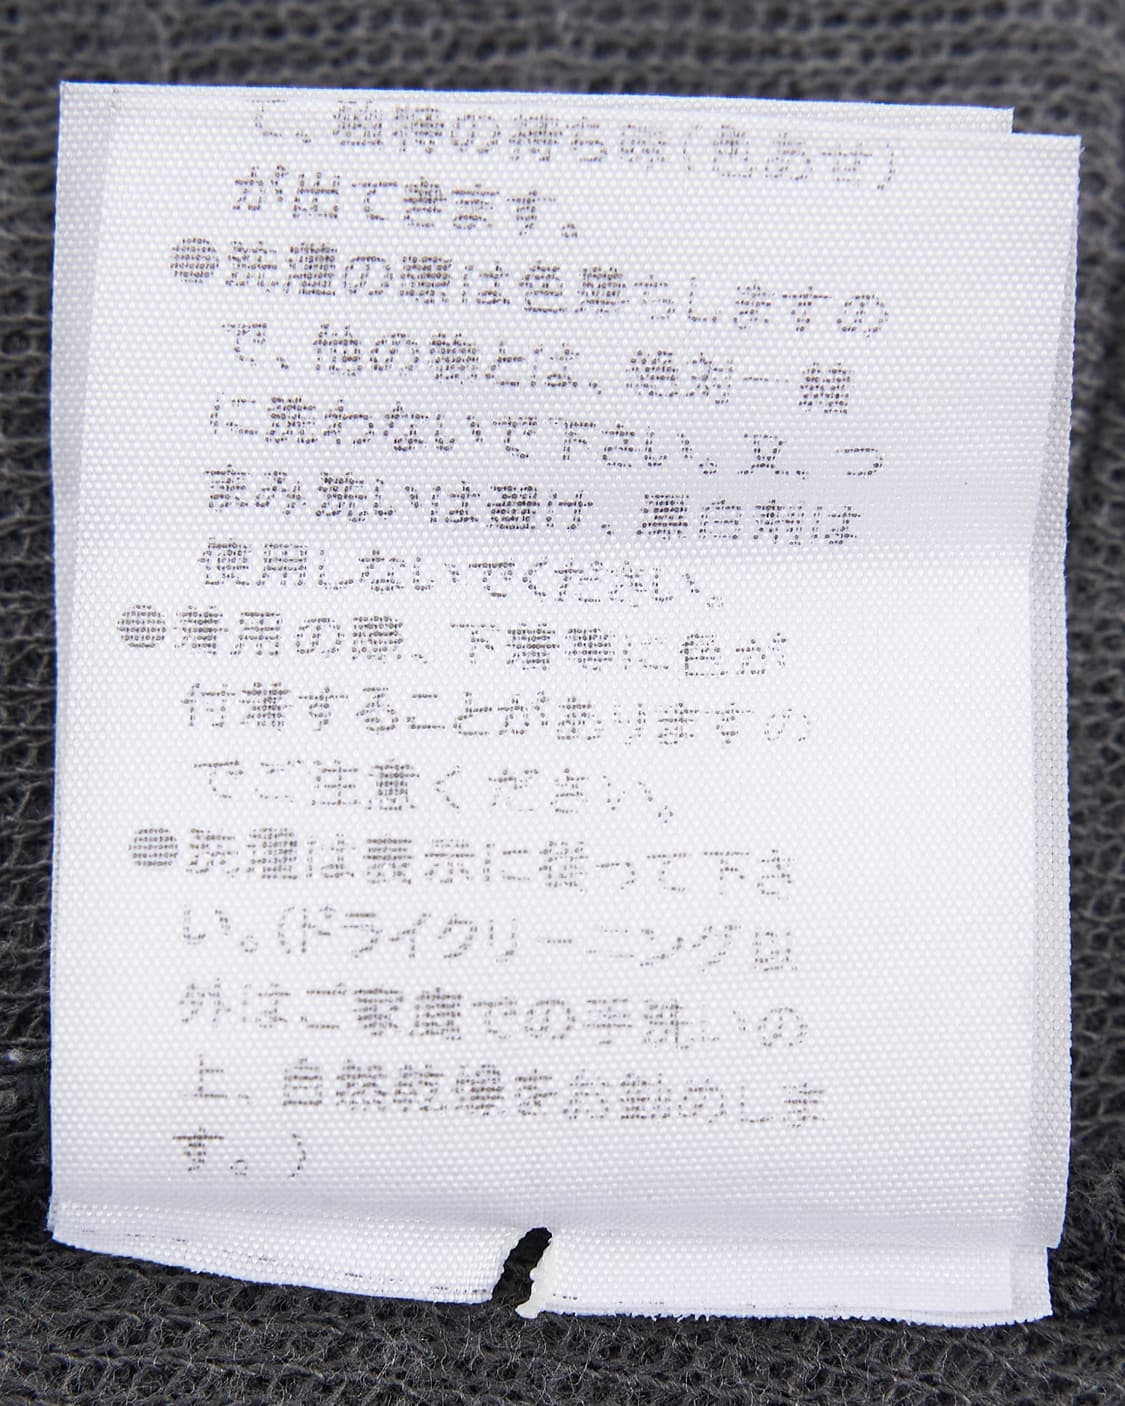 て、独特の持ち味(色あせ)
が出てきます。
●洗濯の際は色落ちしますの
で、他の物とは、絶対一緒
に洗わないで下さい。又、つ
まみ洗いは避け、漂白剤は
使用しないでください。
●着用の際、下着等に色が
付着することがありますの
でご注意ください。
●洗濯は表示に従って下さ
い。(ドライクリーニング以
外はご家庭での手洗いの
上、自然乾燥をお勧めしま
す。)